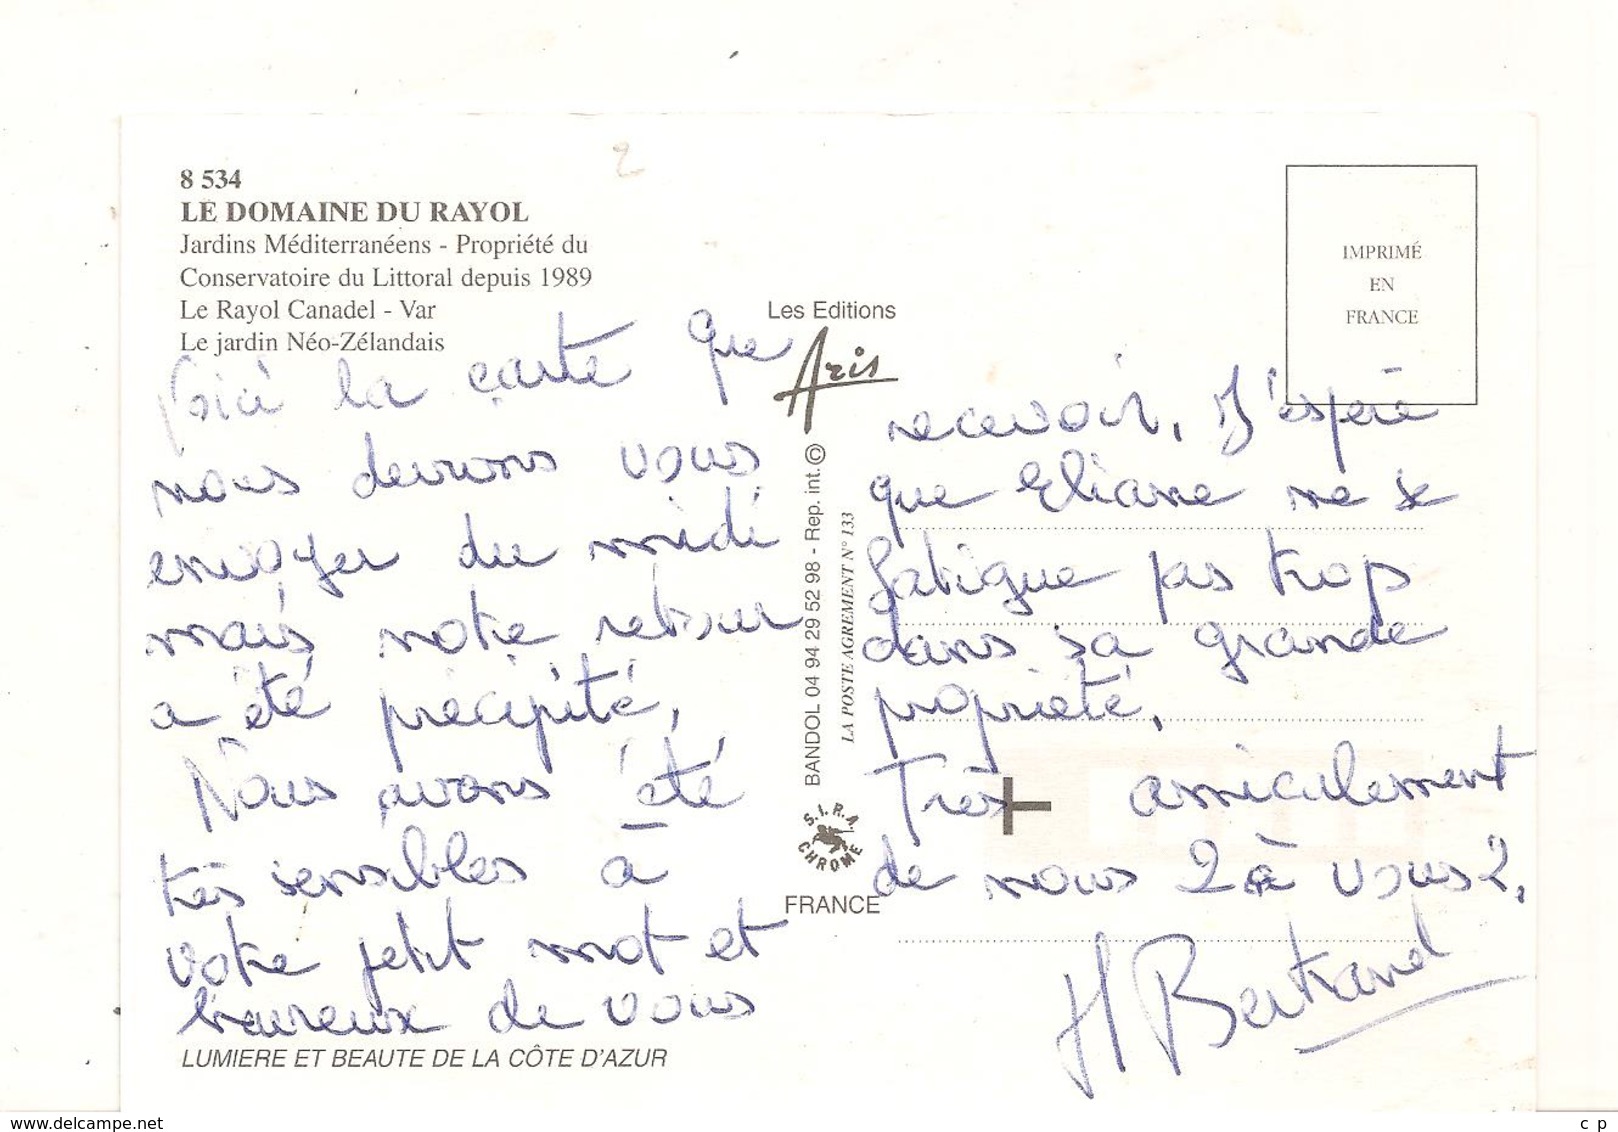 8 534
LE DOMAINE DU RAYOL
Jardins Méditerranéens - Propriété du
Conservatoire du Littoral depuis 1989
Le Rayol Canadel - Var
Le jardin Néo-Zélandais
Voici la carte que
nous devrions vous
envoyer du midi
mais notre retour
a été précipité,
Nous avons été
très sensibles à
votre petit mot et
heureux de vous
LUMIERE ET BEAUTE DE LA CÔTE D'AZUR
Les Editions
Aris
BANDOL 04 94 29 52 98 - Rep. int. ©
LA POSTE AGREMENT N° 133
S.I.R.A.
CHROME
FRANCE
IMPRIMÉ
EN
FRANCE
recevoir, J'espère
que Eliane ne se
fatigue pas trop
dans sa grande
propriété,
Très amicalement
de nous 2 à vous 2,
H Bertrand
2
www.delcampe.net
c p